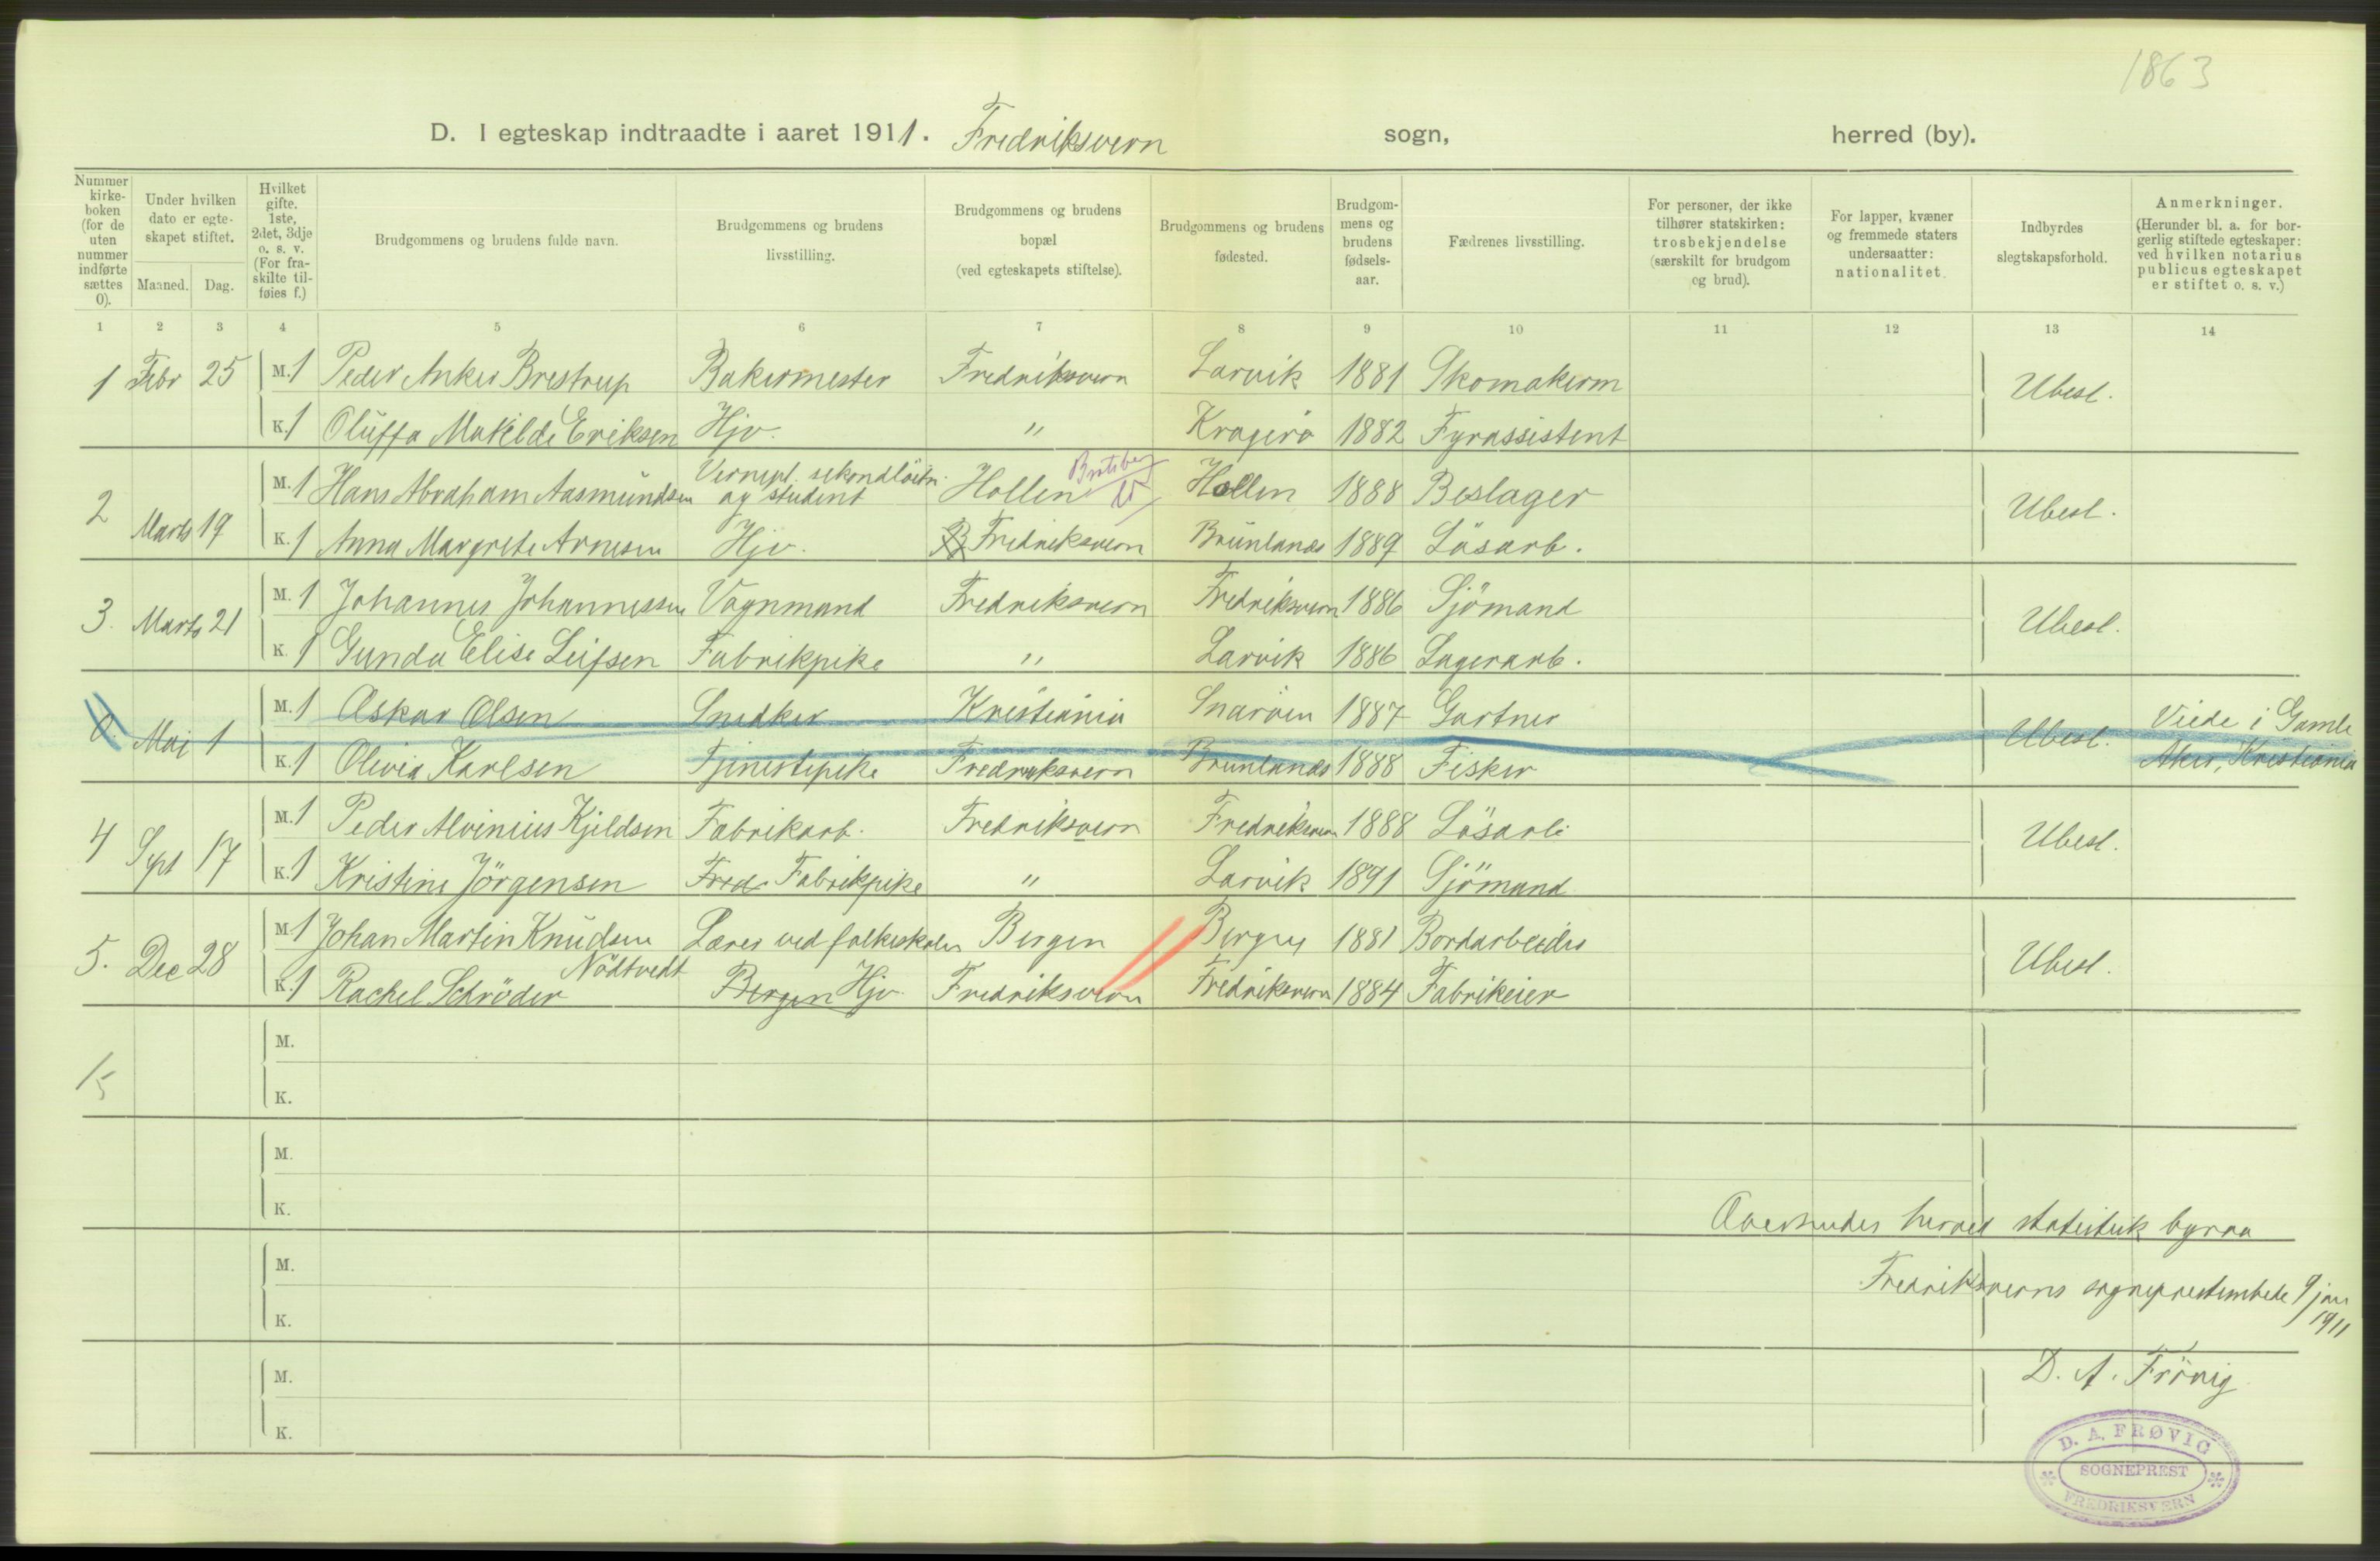 1863
D. I egteskap indtraadte i aaret 1911. Fredriksvern sogn, herred (by).
Nummer kirke-boken (for de uten nummer indførte sættes 0).
Under hvilken dato er egte-skapet stiftet.
Maaned. Dag.
Hvilket gifte. 1ste, 2det, 3dje o. s. v. (For fra-skilte til-føies f.)
Brudgommens og brudens fulde navn.
Brudgommens og brudens livsstilling.
Brudgommens og brudens bopæl (ved egteskapets stiftelse).
Brudgommens og brudens fødested.
Brudgom-mens og brudens fødsels-aar.
Fædrenes livsstilling.
For personer, der ikke tilhører statskirken: trosbekjendelse (særskilt for brudgom og brud).
For lapper, kvæner og fremmede staters undersaatter: nationalitet.
Indbyrdes slegtskapsforhold.
Anmerkninger. (Herunder bl. a. for bor-gerlig stiftede egteskaper: ved hvilken notarius publicus egteskapet er stiftet o. s. v.)
1 2 3 4 5 6 7 8 9 10 11 12 13 14
1 Febr 25 M. 1 Peder Anker Brestrup Bakermester Fredriksvern Larvik 1881 Skomakerm Ubesl.
K. 1 Oluffa Matilde Eriksen Hjv. " Kragerö 1882 Fyrassistent
2 Marts 19 M. 1 Hans Abraham Aasmundsen Vernepl. sekondlöitn. og student Hollen Bratsberg Hollen 1888 Beslager Ubesl.
K. 1 Anna Margrete Arnesen Hjv. B Fredriksvern Brunlanes 1889 Lösarb.
3. Marts 21 M. 1 Johannes Johannessen Vognmand Fredriksvern Fredriksvern 1886 Sjömand Ubesl.
K. 1 Gunda Elise Leifsen Fabrikpike " Larvik 1886 Lagerarb.
0. Mai 1 M. 1 Oskar Olsen Snedker Kristiania Snaröen 1887 Gartner Ubesl. Viede i Gamle
K. 1 Olivia Karlsen Tjenestepike Fredriksvern Brunlanes 1888 Fisker Aker, Kristiania
4 Sept 17 M. 1 Peder Alvinius Kjeldsen Fabrikarb. Fredriksvern Fredriksvern 1888 Lösarb. Ubesl.
K. 1 Kristine Jörgensen Fred Fabrikpike " Larvik 1891 Sjömand
5. Dec 28 M. 1 Johan Martin Knudsen Lærer ved folkeskolen Bergen Bergen 1881 Bordarbeider Ubesl.
K. 1 Rachel Schröder Nödtvedt Bergen Hjv. Fredriksvern Fredriksvern 1884 Fabrikeier
M.
15
K.
M.
K.
Oversendes herved statistisk byraa
M.
Fredriksverns sogneprestembede 9/jan 1911
K.
M.
D. A. Frövig
K.
D. A. FRØVIG
SOGNEPREST
FREDRIKSVERN